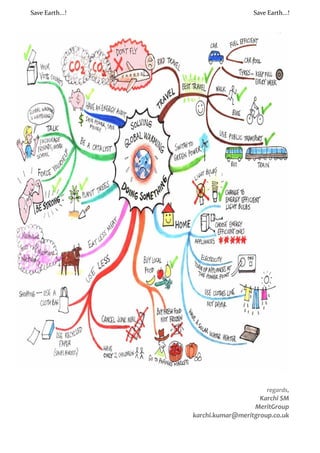 Save Earth...!
Save Earth...!
SOLVING
GLOBAL WARMING
DOING SOMETHING
TRAVEL
DON'T FLY
CO2
CO2
BAD TRAVEL
BEST TRAVEL
CAR
FUEL EFFICIENT
CAR POOL
TYRES - KEEP FULL
EVERY WEEK
WALK
BIKE
USE PUBLIC TRANSPORT
BUS
TRAIN
SWITCH TO
GREEN POWER
HOME
LIGHT BULBS
CHANGE TO
ENERGY EFFICIENT
LIGHT BULBS
APPLIANCES
CHOOSE ENERGY
EFFICIENT ONES
ELECTRICITY
TURN OFF APPLIANCES AT
THE POWER POINT
USE CLOTHES LINE
NOT DRYER
HAVE A SOLAR WATER HEATER
BUY LOCAL
FOOD
BUY FRESH FOOD
NOT FROZEN
GO TO FARMERS MARKETS
USE LESS
CANCEL JUNK MAIL
HAVE
ONLY 2 CHILDREN
USE RECYCLED
PAPER
SHOPPING - USE A
CLOTH BAG
EAT LESS MEAT
PLANT TREES
BE A CATALYST
HAVE AN ENERGY AUDIT
SAVE POWER, SAVE
MONEY
YOUR
VOTE COUNTS
TALK
GLOBAL WARMING
IS HAPPENING
FORCE YOURSELF
BE STRONG
regards,
Karchi SM
MeritGroup
karchi.kumar@meritgroup.co.uk